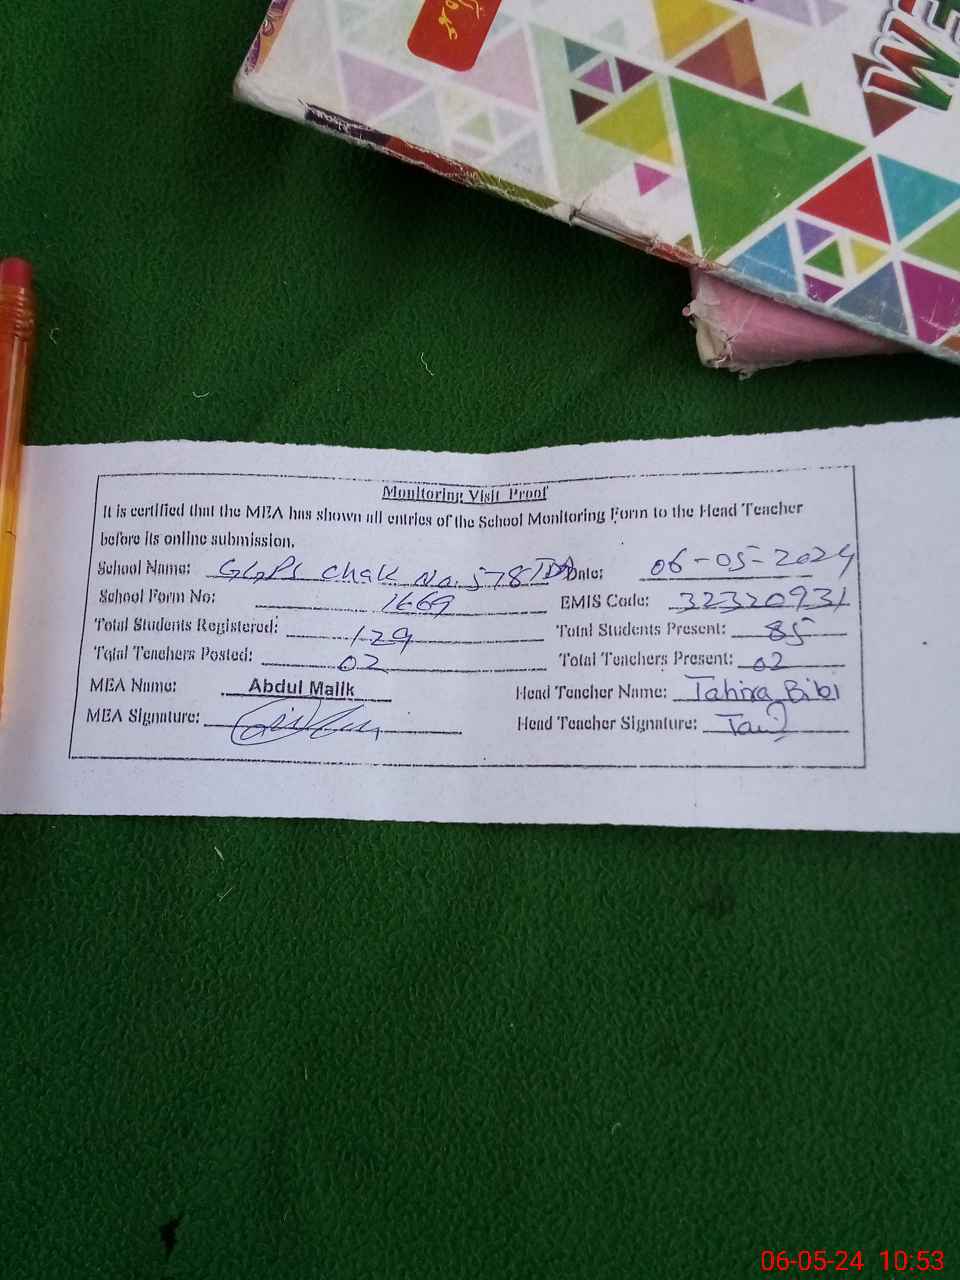 WE
Monitoring Visit Proof
It is certified that the MEA has shown all entries of the School Monitoring Form to the Head Teacher
before its online submission.
School Name: GGPS Chak No. 578 TDA Date: 06-05-2024
School Form No: 1669 EMIS Code: 32320931
Total Students Registered: 129 Total Students Present: 85
Total Teachers Posted: 02 Total Teachers Present: 02
MEA Name: Abdul Malik Head Teacher Name: Tahira Bibi
MEA Signature: Head Teacher Signature:
06-05-24 10:53